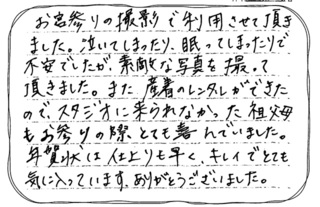 お宮参りの撮影で利用させて頂き
ました。泣いてしまったり、眠ってしまったりで
不安でしたが素敵な写真を撮って
頂きました。また産着のレンタルができた
ので、スタジオに来られなかった祖父母
もお参りの際とても喜んでいました。
年賀状は仕上りも早く、キレイでとても
気に入っています。ありがとうございました。